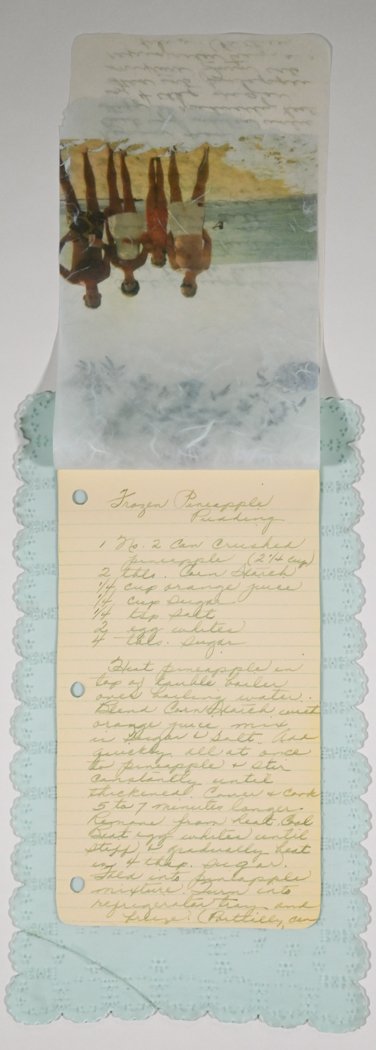 Frozen Pineapple
Pudding
1 No. 2 Can Crushed
pineapple (2 1/4 cup)
2 tbls. Corn Starch
1/4 cup orange juice
1/4 cup sugar
1/4 tsp salt
2 egg whites
4 tbls. sugar
Heat pineapple in
top of double boiler
over boiling water.
Blend Corn Starch with
orange juice mix
in sugar & salt. Add
quickly all at once
to pineapple & stir
constantly until
thickened. Cover & cook
5 to 7 minutes longer.
Remove from heat. Cool
Beat egg whites until
stiff & gradually beat
in 4 tbsp. sugar.
Fold into pineapple
mixture. Turn into
refrigerator tray and
freeze.